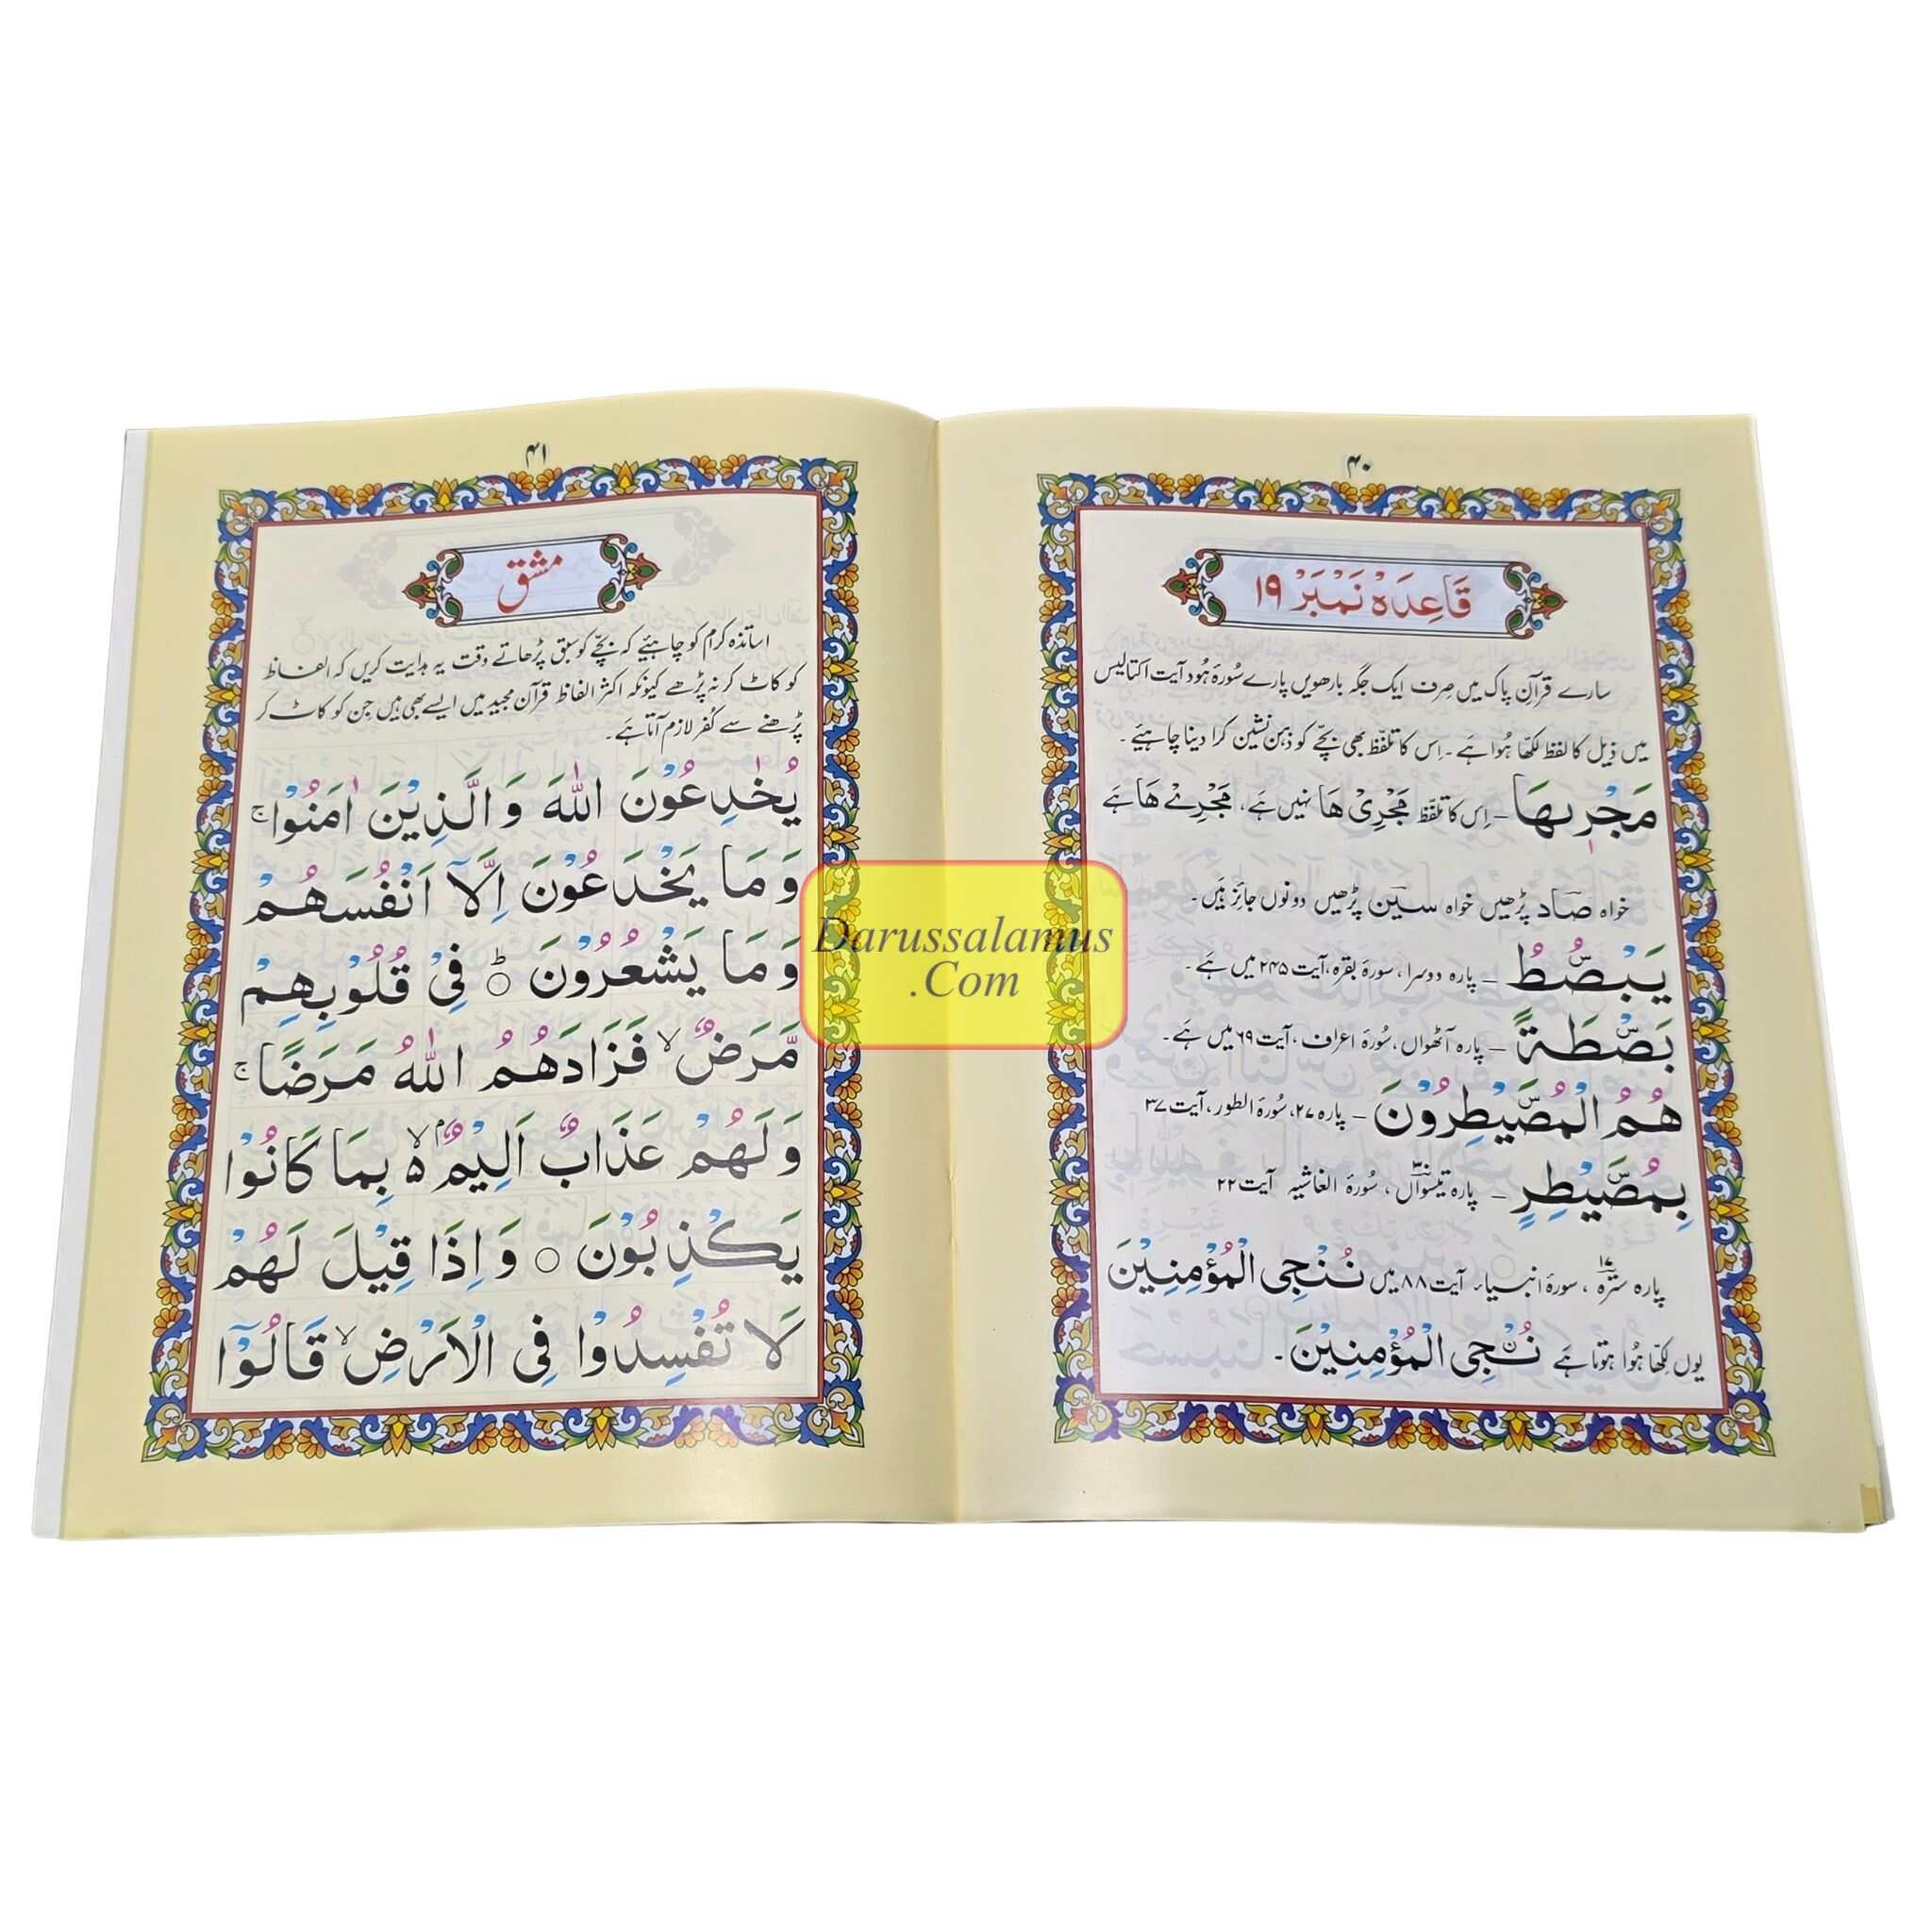 ۴۰
قَاعِدَہ نَمْبَرْ ۱۹
سارے قرآنِ پاک میں صِرف ایک جگہ بارھویں پارے سُورۂ ہُود آیت اکتالیس
میں ذیل کا لفظ لکھّا ہُوا ہَے۔ اِس کا تلفّظ بھی بچّے کو ذہن نشین کرا دینا چاہیئے۔
مَجْرٖىهَا – اِس کا تلفّظ مَجْرِیْ هَا نہیں ہَے، مَجْرِےْ هَا ہَے
خواہ صاد پڑھیں خواہ سین پڑھیں دونوں جائز ہَیں۔
يَبْصُۜطُ – پارہ دوسرا، سورۂ بقرہ، آیت ۲۴۵ میں ہَے۔
بَصْۜطَةً – پارہ آٹھواں، سُورۂ اعراف، آیت ۶۹ میں ہَے۔
هُمُ الْمُصَۜيْطِرُوْنَ – پارہ ۲۷، سُورۂ الطور، آیت ۳۷
بِمُصَۜيْطِرٍ – پارہ تیسواں ۳۰، سُورۂ الغاشیہ آیت ۲۲
پارہ سترہ ۱۷، سورۂ انبیاء آیت ۸۸ میں نُنْجِی الْمُؤْمِنِيْنَ
یوں لکھّا ہُوا ہوتا ہَے نُـۨجِی الْمُؤْمِنِيْنَ۔
۴۱
مشق
اساتذہ کرام کو چاہیئے کہ بچّے کو سبق پڑھاتے وقت یہ ہدایت کریں کہ الفاظ
کو کاٹ کر نہ پڑھے کیونکہ اکثر الفاظ قرآن مجید میں ایسے بھی ہَیں جِن کو کاٹ کر
پڑھنے سے کُفر لازم آتا ہَے۔
يُخٰدِعُوْنَ اللّٰهَ وَالَّذِيْنَ اٰمَنُوْا ۚ
وَمَا يَخْدَعُوْنَ اِلَّآ اَنْفُسَهُمْ
وَمَا يَشْعُرُوْنَ ؕ۝ فِیْ قُلُوْبِهِمْ
مَّرَضٌ ۙ فَزَادَهُمُ اللّٰهُ مَرَضًا ۚ
وَلَهُمْ عَذَابٌ اَلِيْمٌۢ ۙ۵ بِمَا كَانُوْا
يَكْذِبُوْنَ ۝ وَاِذَا قِيْلَ لَهُمْ
لَا تُفْسِدُوْا فِی الْاَرْضِ ۙ قَالُوْٓا
Darussalamus
.Com